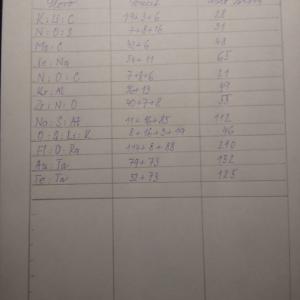 K : Li : C 19+3+6 28
N : O : S 7+8+16 31
Mo : C 42+6 48
Xe : Na 54+11 65
N : O : C 7+8+6 21
Kr : Al 36+13 49
Zr : N : O 40+7+8 55
Na : S : At 11+16+85 112
O : S : Li : K 8+16+3+19 46
Fl : O : Ra 114+8+88 210
Au : Ta 79+73 152
Te : Ta 52+73 125